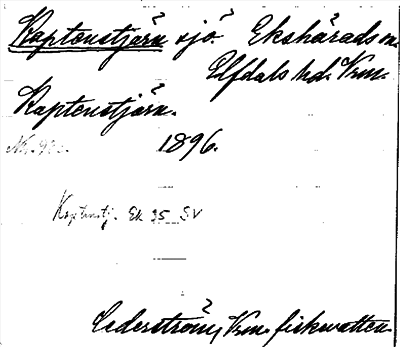 Kaptenstjärn sjö. Ekshärads sn.
Elfdals hd. Vrm.
Kaptenstjärn.
1896.
Kaptenstj. Ek 35 SV
Cederström, Vrm. fiskvatten.